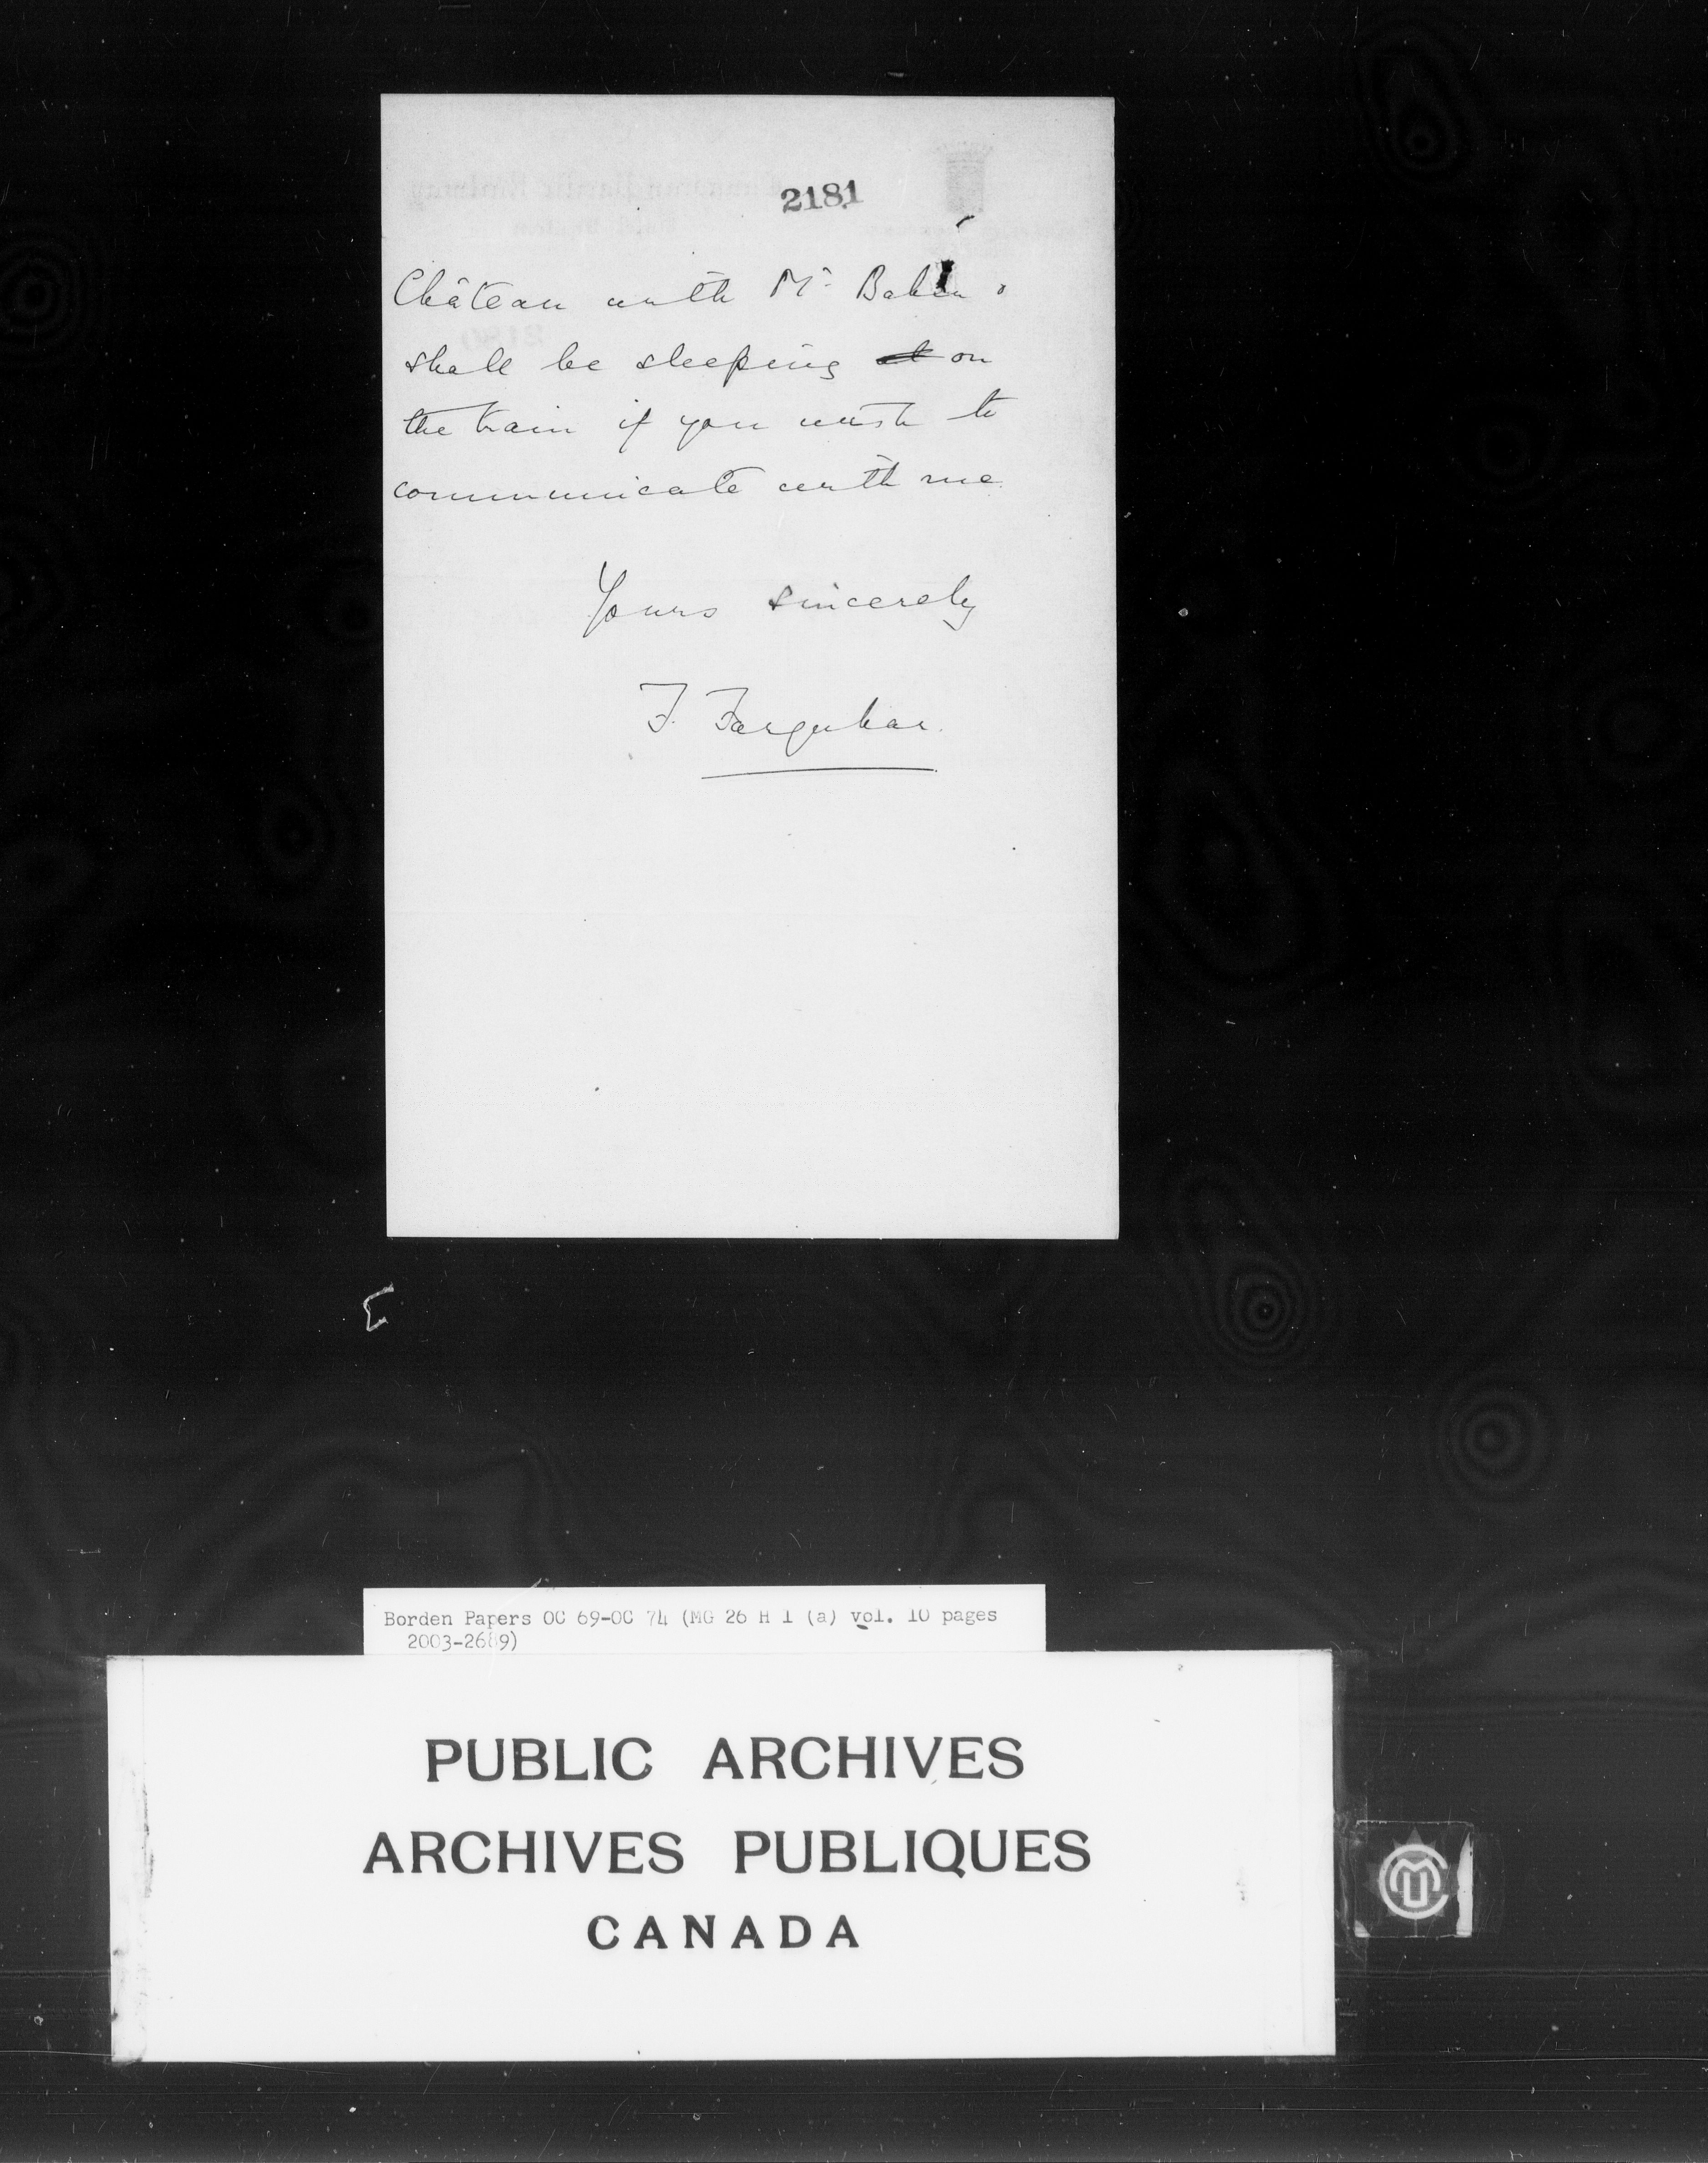 2181
Château with Mr. Babin &
shall be sleeping at on
the train if you wish to
communicate with me.
Yours sincerely
F. Farquhar.
Borden Papers OC 69-OC 74 (MG 26 H 1 (a) vol. 10 pages
2003-2689)
PUBLIC ARCHIVES
ARCHIVES PUBLIQUES
CANADA